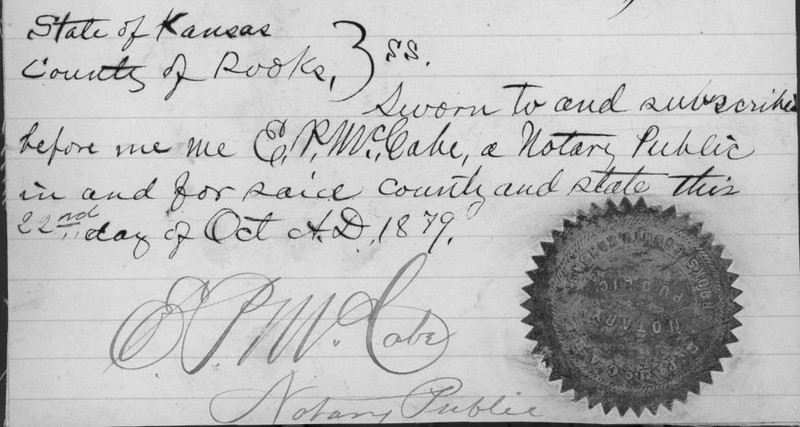 State of Kansas
County of Rooks, } SS.
Sworn to and subscribe
before me me E. P. McCabe, a Notary Public
in and for saice county and state this
22nd day of Oct A.D. 1879.
E P McCabe
Notary Public
NOTARY
PUBLIC